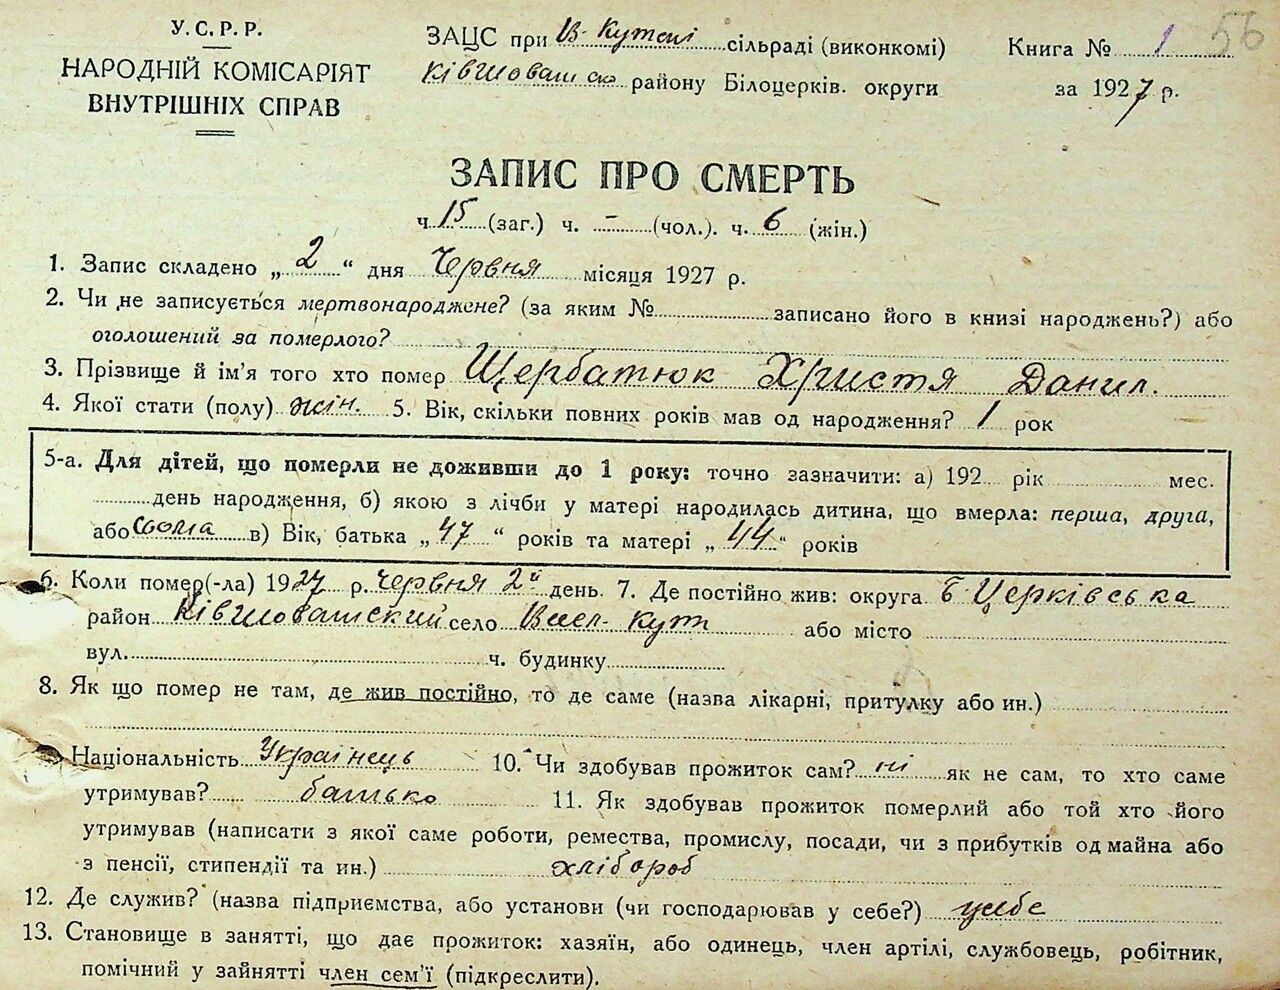 У.С.Р.Р.
НАРОДНІЙ КОМІСАРІЯТ
ВНУТРІШНІХ СПРАВ
ЗАЦС при В-Кутскі сільраді (виконкомі)
Ківшоватско району Білоцерків. округи
Книга № 1
56
за 1927 р.
ЗАПИС ПРО СМЕРТЬ
ч. 15 (заг.) ч. – (чол.). ч. 6 (жін.)
1. Запис складено „ 2 “ дня Червня місяця 1927 р.
2. Чи не записується мертвонароджене? (за яким № записано його в книзі народжень?) або
оголошений за померлого?
3. Прізвище й ім'я того хто помер Щербатюк Христя Данил.
4. Якої стати (полу) жін. 5. Вік, скільки повних років мав од народження? 1 рок
5-а. Для дітей, що померли не доживши до 1 року: точно зазначити: а) 192 рік мес.
день народження, б) якою з лічби у матері народилась дитина, що вмерла: перша, друга,
або сьома в) Вік, батька „ 47 “ років та матері „ 44 “ років
6. Коли помер(-ла) 1927 р. червня 2й день. 7. Де постійно жив: округа Б Церківська
район Ківшоватский село Висл-Кут або місто
вул. ч. будинку
8. Як що помер не там, де жив постійно, то де саме (назва лікарні, притулку або ин.)
Національність Українець 10. Чи здобував прожиток сам? ні як не сам, то хто саме
утримував? батько 11. Як здобував прожиток померлий або той хто його
утримував (написати з якої саме роботи, ремества, промислу, посади, чи з прибутків од майна або
з пенсії, стипендії та ин.) хлібороб
12. Де служив? (назва підприємства, або установи (чи господарював у себе?) у себе
13. Становище в занятті, що дає прожиток: хазяїн, або одинець, член артілі, службовець, робітник,
помічний у зайнятті член сем'ї (підкреслити).